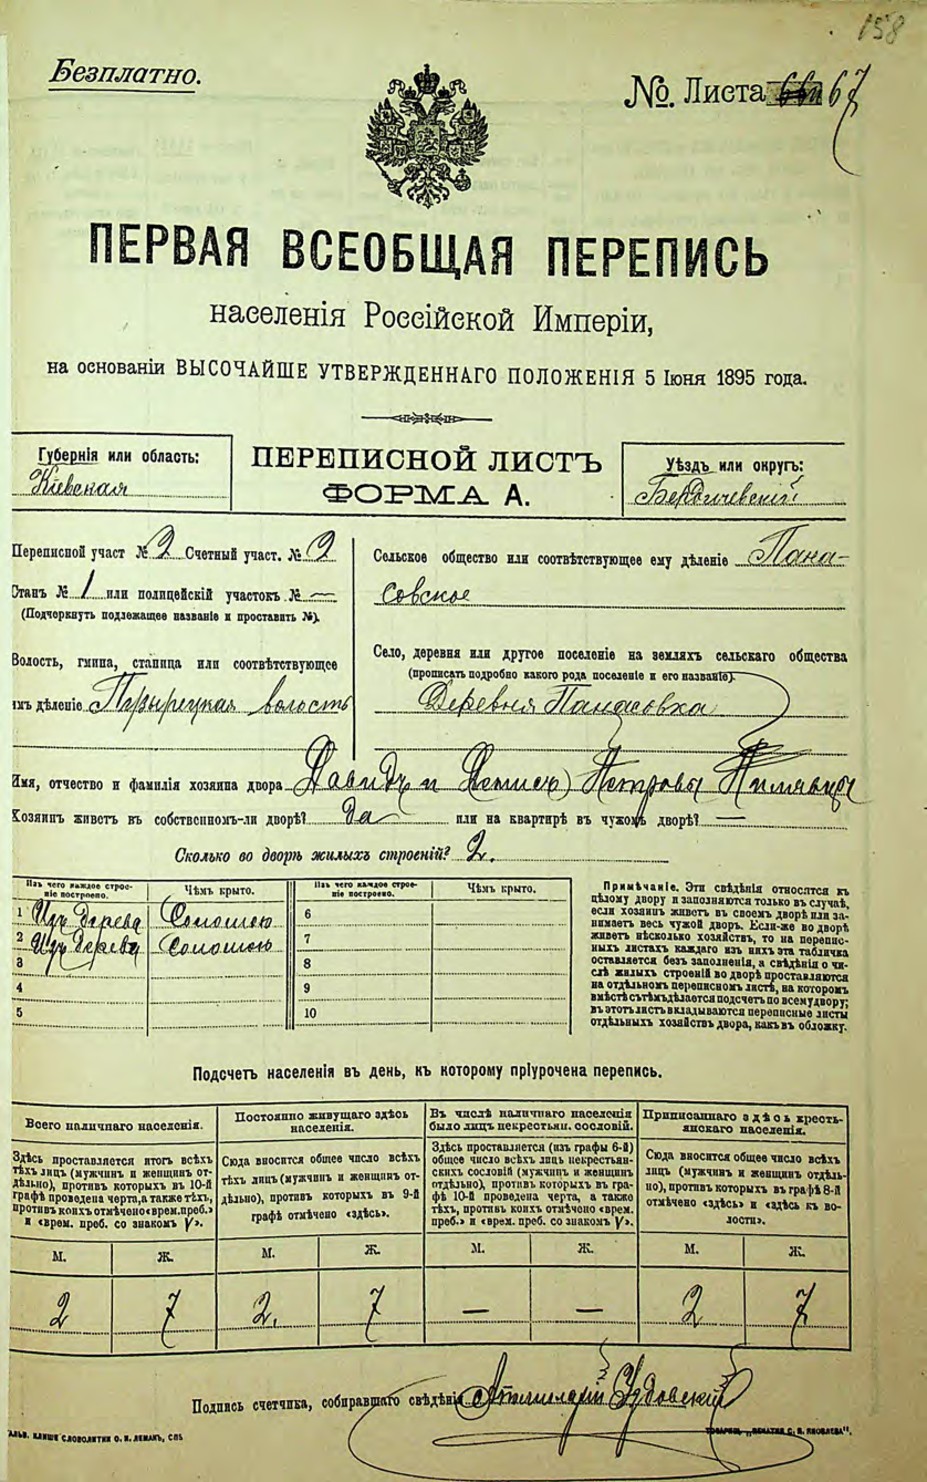 158
Безплатно.
№. Листа 67
ПЕРВАЯ ВСЕОБЩАЯ ПЕРЕПИСЬ
населенія Россійской Имперіи,
на основаніи ВЫСОЧАЙШЕ УТВЕРЖДЕННАГО ПОЛОЖЕНІЯ 5 Іюня 1895 года.
Губернія или область:
Кіевская
ПЕРЕПИСНОЙ ЛИСТЪ
ФОРМА А.
Уѣздъ или округъ:
Бердичевскій
Переписной участ № 2 Счетный участ. № 2
Станъ № 1 или полицейскій участокъ № —
(Подчеркнуть подлежащее названіе и проставить №).
Волость, гмина, станица или соотвѣтствующее
имъ дѣленіе волость
Сельское общество или соотвѣтствующее ему дѣленіе Пана-
совское
Село, деревня или другое поселеніе на земляхъ сельскаго общества
(прописать подробно какого рода поселеніе и его названіе).
Деревня Панасовка
Имя, отчество и фамилія хозяина двора Давидъ и Денисъ Петровы
Хозяинъ живетъ въ собственномъ-ли дворѣ? да или на квартирѣ въ чужомъ дворѣ? —
Сколько во дворѣ жилыхъ строеній? 2.
Изъ чего каждое строе-
ніе построено.
Чѣмъ крыто.
Изъ чего каждое строе-
ніе построено.
Чѣмъ крыто.
1 Изъ дерева Соломою 6
2 Изъ дерева Соломою 7
3 8
4 9
5 10
Примѣчаніе. Эти свѣдѣнія относятся къ
цѣлому двору и заполняются только въ случаѣ,
если хозяинъ живетъ въ своемъ дворѣ или за-
нимаетъ весь чужой дворъ. Если-же во дворѣ
живетъ нѣсколько хозяйствъ, то на перепис-
ныхъ листахъ каждаго изъ нихъ эта табличка
оставляется безъ заполненія, а свѣдѣнія о чи-
слѣ жилыхъ строеній во дворѣ проставляются
на отдѣльномъ переписномъ листѣ, на которомъ
вмѣстѣ съ тѣмъ дѣлается подсчетъ по всему двору;
въ этотъ листъ вкладываются переписные листы
отдѣльныхъ хозяйствъ двора, какъ въ обложку.
Подсчетъ населенія въ день, къ которому пріурочена перепись.
Всего наличнаго населенія.
Здѣсь проставляется итогъ всѣхъ
тѣхъ лицъ (мужчинъ и женщинъ от-
дѣльно), противъ которыхъ въ 10-й
графѣ проведена черта, а также тѣхъ,
противъ коихъ отмѣчено «врем. преб.»
и «врем. преб. со знакомъ V».
Постоянно живущаго здѣсь
населенія.
Сюда вносится общее число всѣхъ
тѣхъ лицъ (мужчинъ и женщинъ от-
дѣльно), противъ которыхъ въ 9-й
графѣ отмѣчено «здѣсь».
Въ числѣ наличнаго населенія
было лицъ некрестьян. сословій.
Здѣсь проставляется (изъ графы 6-й)
общее число всѣхъ лицъ некрестьян-
скихъ сословій (мужчинъ и женщинъ
отдѣльно), противъ которыхъ въ гра-
фѣ 10-й проведена черта, а также
тѣхъ, противъ коихъ отмѣчено «врем.
преб.» и «врем. преб. со знакомъ V».
Приписаннаго здѣсь кресть-
янскаго населенія.
Сюда вносится общее число всѣхъ
лицъ (мужчинъ и женщинъ отдѣль-
но), противъ которыхъ въ графѣ 8-й
отмѣчено «здѣсь» и «здѣсь къ во-
лости».
М. Ж. М. Ж. М. Ж. М. Ж.
2 7 2. 7 — — 2 7
Подпись счетчика, собиравшаго свѣдѣнія
КЛИШЕ СЛОВОЛИТНИ О. И. ЛЕМАНЪ, СПБ
ТОВАРИЩ. „ПЕЧАТНЯ С. П. ЯКОВЛЕВА".